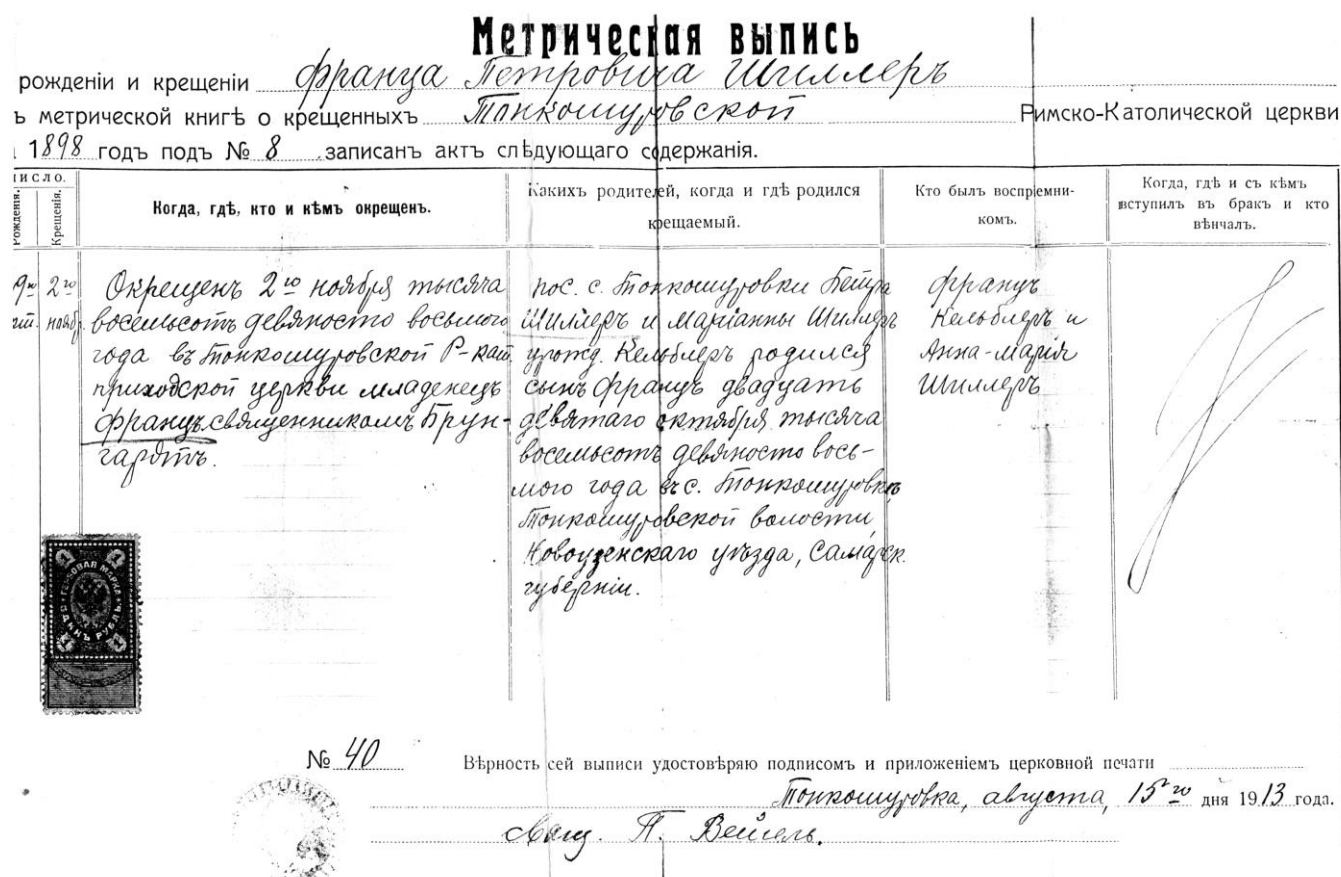 Метрическая выпись
рожденіи и крещеніи Франца Петровича Шиллеръ
ъ метрической книгѣ о крещенныхъ Тонкошуровской Римско-Католической церкви
1898 годъ подъ № 8 записанъ актъ слѣдующаго содержанія.
ИСЛО.
Рожденія.
Крещенія.
Когда, гдѣ, кто и кѣмъ окрещенъ.
Какихъ родителей, когда и гдѣ родился
крещаемый.
Кто былъ воспріемни-
комъ.
Когда, гдѣ и съ кѣмъ
вступилъ въ бракъ и кто
вѣнчалъ.
2го
нояб.
Окрещенъ 2го ноября тысяча
восемьсотъ девяносто восьмого
года въ Тонкошуровской Р-кат.
приходской церкви младенецъ
Францъ священникомъ Брун-
гардтъ.
пос. с. Тонкошуровки Петра
Шиллеръ и Маріанны Шиллеръ
урожд. Кельблеръ родился
сынъ Францъ двадцать
девятаго октября тысяча
восемьсотъ девяносто вось-
мого года въ с. Тонкошуровка,
Тонкошуровской волости
Новоузенскаго уѣзда, Самарск.
губерніи.
Францъ
Кельблеръ и
Анна-Марія
Шиллеръ
1 1
ГЕРБОВАЯ МАРКА
ОДИНЪ РУБЛЬ
1 1
№ 40
Вѣрность сей выписи удостовѣряю подписомъ и приложеніемъ церковной печати
Тонкошуровка, августа, 15го дня 1913 года.
Свящ. П. Вейцель.